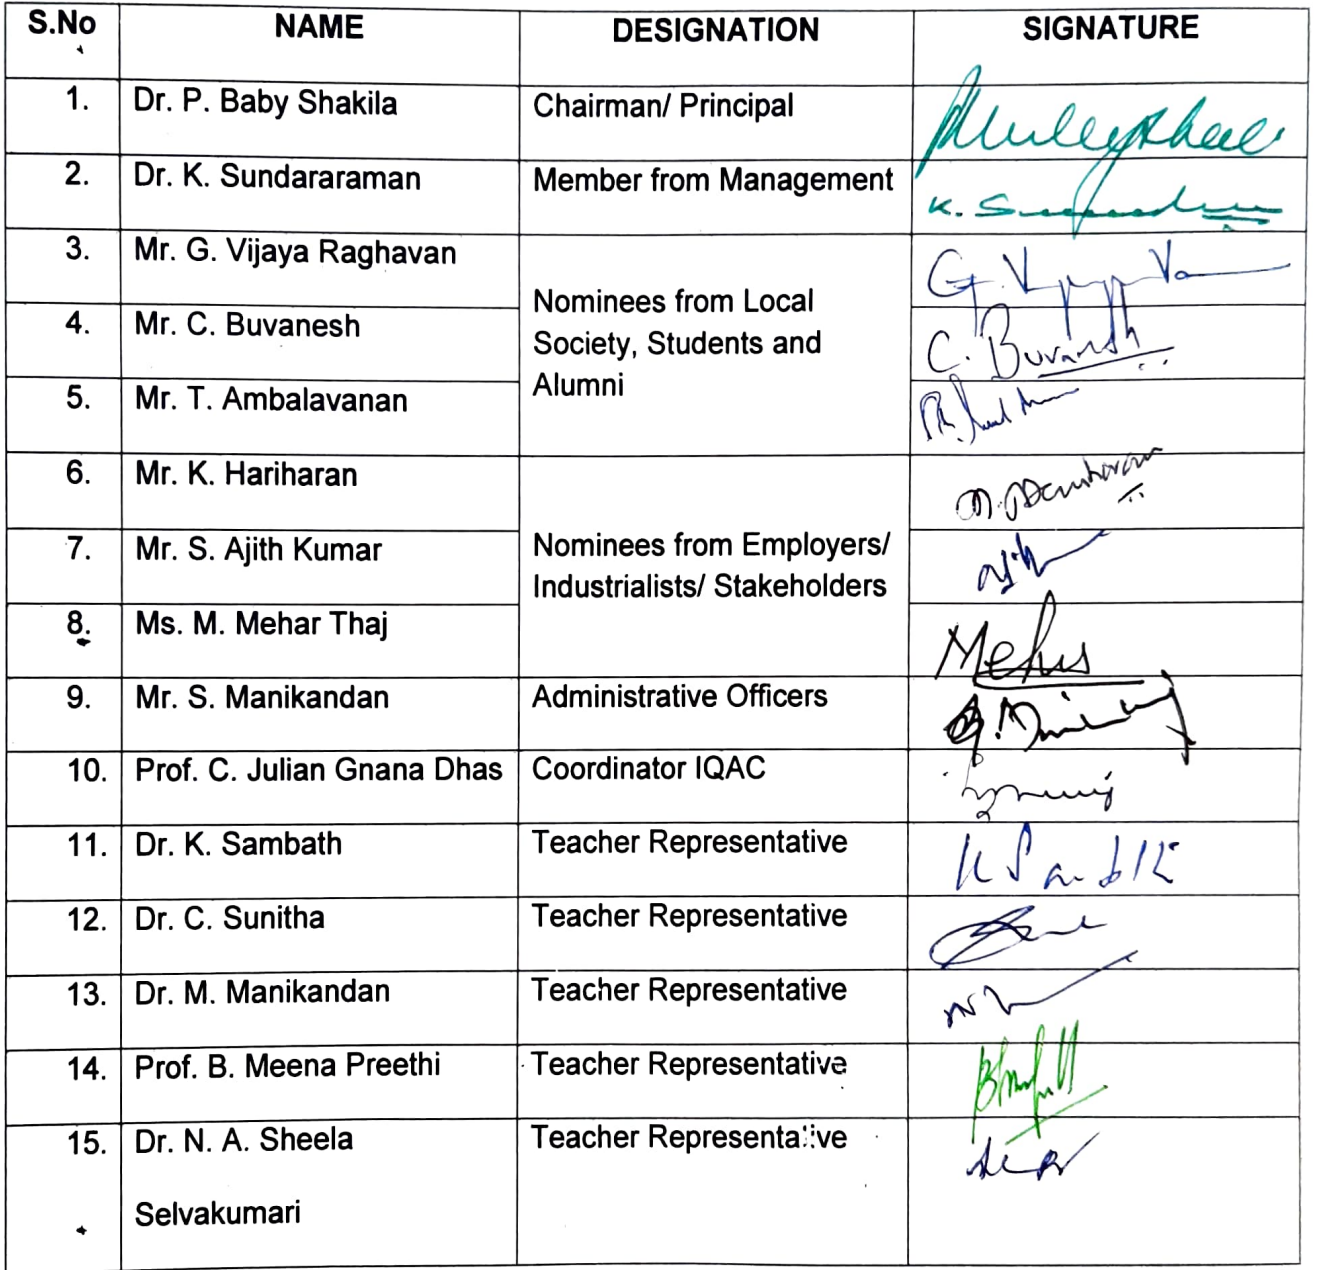 S.No NAME DESIGNATION SIGNATURE
1. Dr. P. Baby Shakila Chairman/ Principal
2. Dr. K. Sundararaman Member from Management K.
3. Mr. G. Vijaya Raghavan G.
Nominees from Local
4. Mr. C. Buvanesh Society, Students and C. Buvanesh
Alumni
5. Mr. T. Ambalavanan
6. Mr. K. Hariharan
7. Mr. S. Ajith Kumar Nominees from Employers/
Industrialists/ Stakeholders
8. Ms. M. Mehar Thaj
9. Mr. S. Manikandan Administrative Officers
10. Prof. C. Julian Gnana Dhas Coordinator IQAC
11. Dr. K. Sambath Teacher Representative
12. Dr. C. Sunitha Teacher Representative
13. Dr. M. Manikandan Teacher Representative
14. Prof. B. Meena Preethi Teacher Representative
15. Dr. N. A. Sheela Teacher Representative
Selvakumari